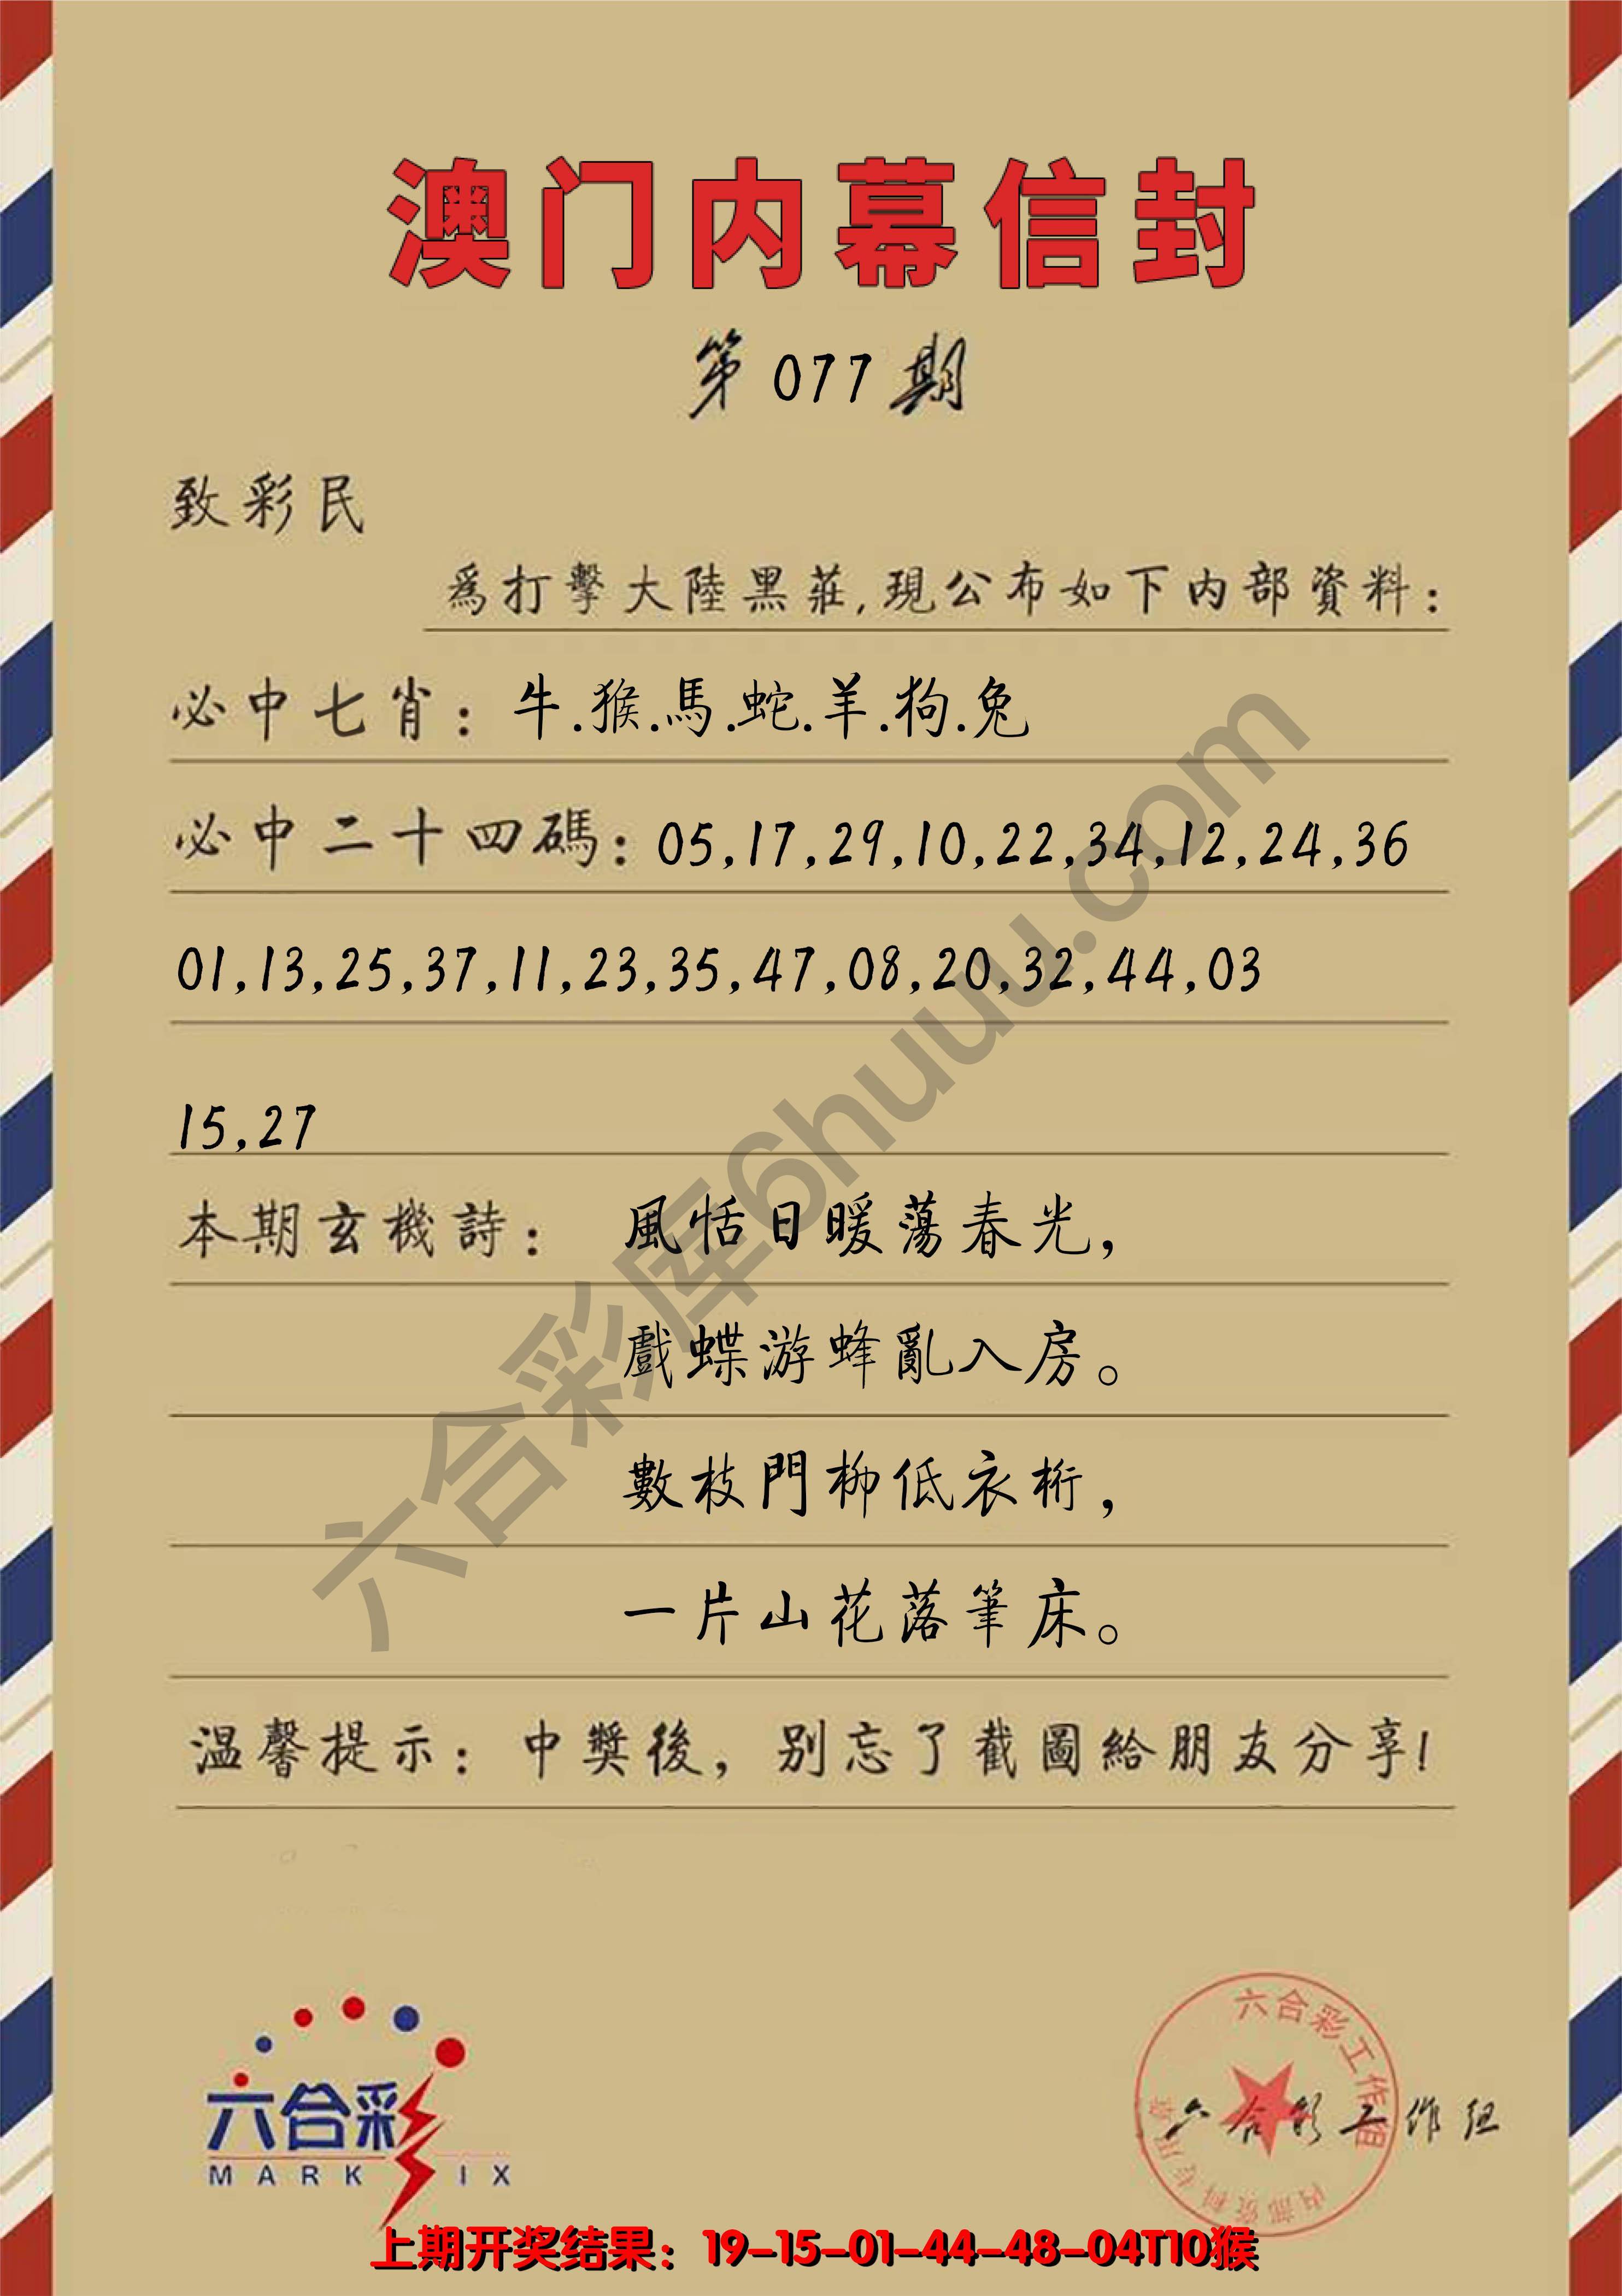 澳门内幕信封
第 077 期
致彩民
爲打擊大陸黑莊,現公布如下内部資料:
必中七肖: 牛.猴.馬.蛇.羊.狗.兔
必中二十四碼: 05,17,29,10,22,34,12,24,36
01,13,25,37,11,23,35,47,08,20,32,44,03
15,27
本期玄機詩: 風恬日暖蕩春光,
戲蝶游蜂亂入房。
數枝門柳低衣桁,
一片山花落筆床。
温馨提示: 中獎後, 别忘了截圖給朋友分享!
六合彩库6huuu.com
六合彩
MARK IX
六合彩工作组
六合彩工作组
上期开奖结果: 19-15-01-44-48-04T10猴